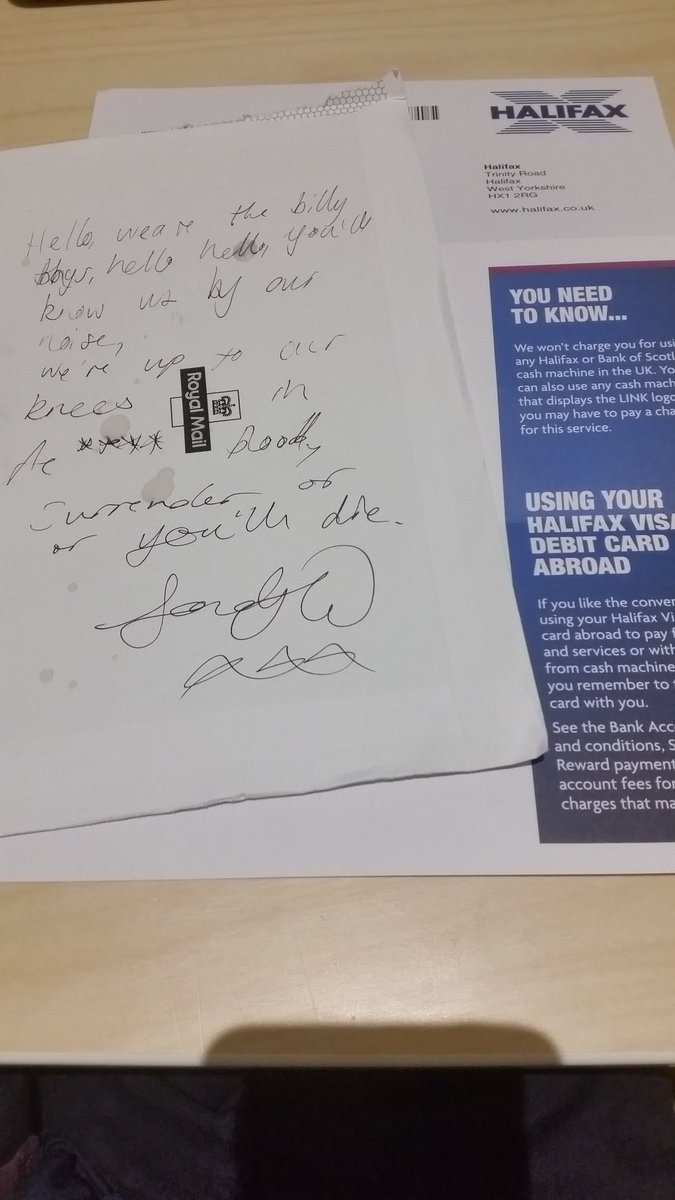 Hello, we are the billy
boys, hello hello, you'll
know us by our
noise,
we're up to our
knees in
the **** bloody
surrender or
or you'll die.
Royal Mail
HALIFAX
Halifax
Trinity Road
Halifax
West Yorkshire
HX1 2RG
www.halifax.co.uk
YOU NEED
TO KNOW...
We won't charge you for usi
any Halifax or Bank of Scotl
cash machine in the UK. Yo
can also use any cash mach
that displays the LINK logo
you may have to pay a cha
for this service.
USING YOUR
HALIFAX VISA
DEBIT CARD
ABROAD
If you like the conver
using your Halifax Vi
card abroad to pay f
and services or with
from cash machine
you remember to t
card with you.
See the Bank Acc
and conditions, S
Reward payment
account fees for
charges that ma